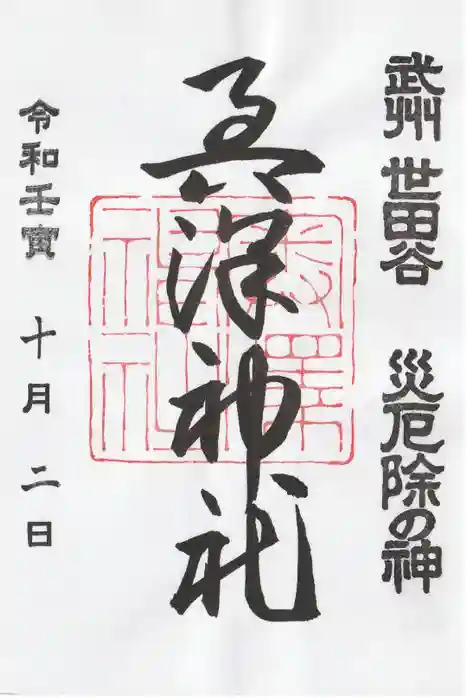 武州 世田谷 災厄除の神
奥澤神社
令和壬寅 十月 二日